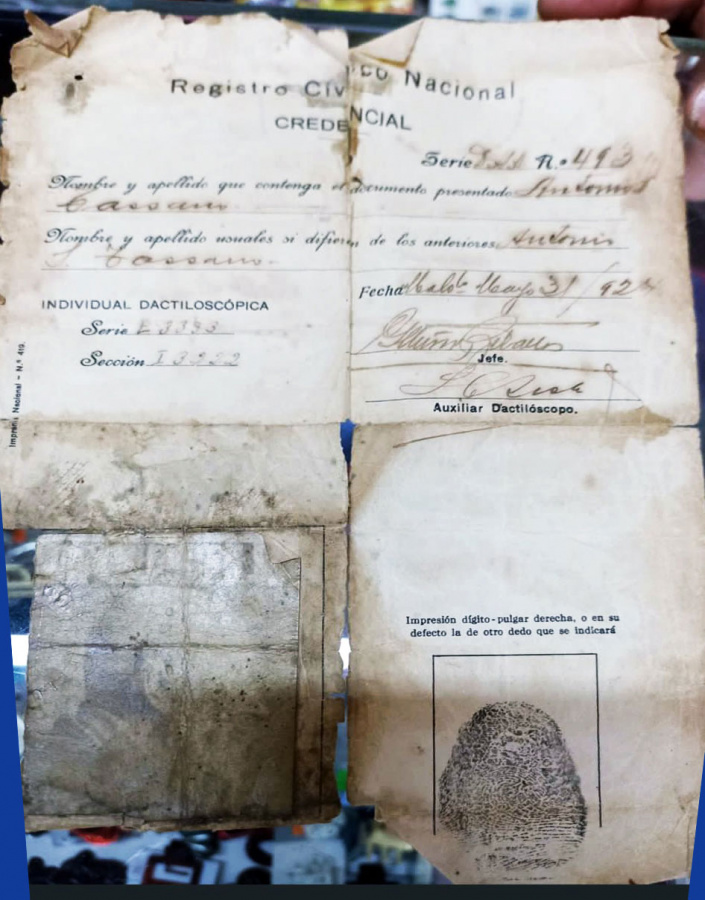 Registro Cív co Nacional
CREDENCIAL
Serie N.º 493
Nombre y apellido que contenga el documento presentado Antonio
Cassano
Nombre y apellido usuales si difieren de los anteriores Antonio
Cassano
Fecha Mayo 31/92
INDIVIDUAL DACTILOSCÓPICA
Serie E 3333
Sección I 3222
Jefe.
Auxiliar Dactilóscopo.
Imprenta Nacional – N.º 419.
Impresión dígito-pulgar derecha, o en su
defecto la de otro dedo que se indicará